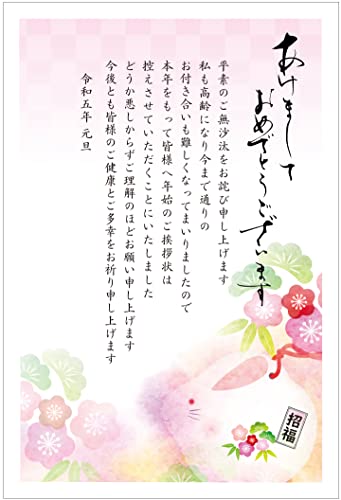 あけまして
おめでとうございます
平素のご無沙汰をお詫び申し上げます
私も高齢になり今まで通りの
お付き合いも難しくなってまいりましたので
本年をもって皆様へ年始のご挨拶状は
控えさせていただくことにいたしました
どうか悪しからずご理解のほどお願い申し上げます
今後とも皆様のご健康とご多幸をお祈り申し上げます
令和五年 元旦
招福